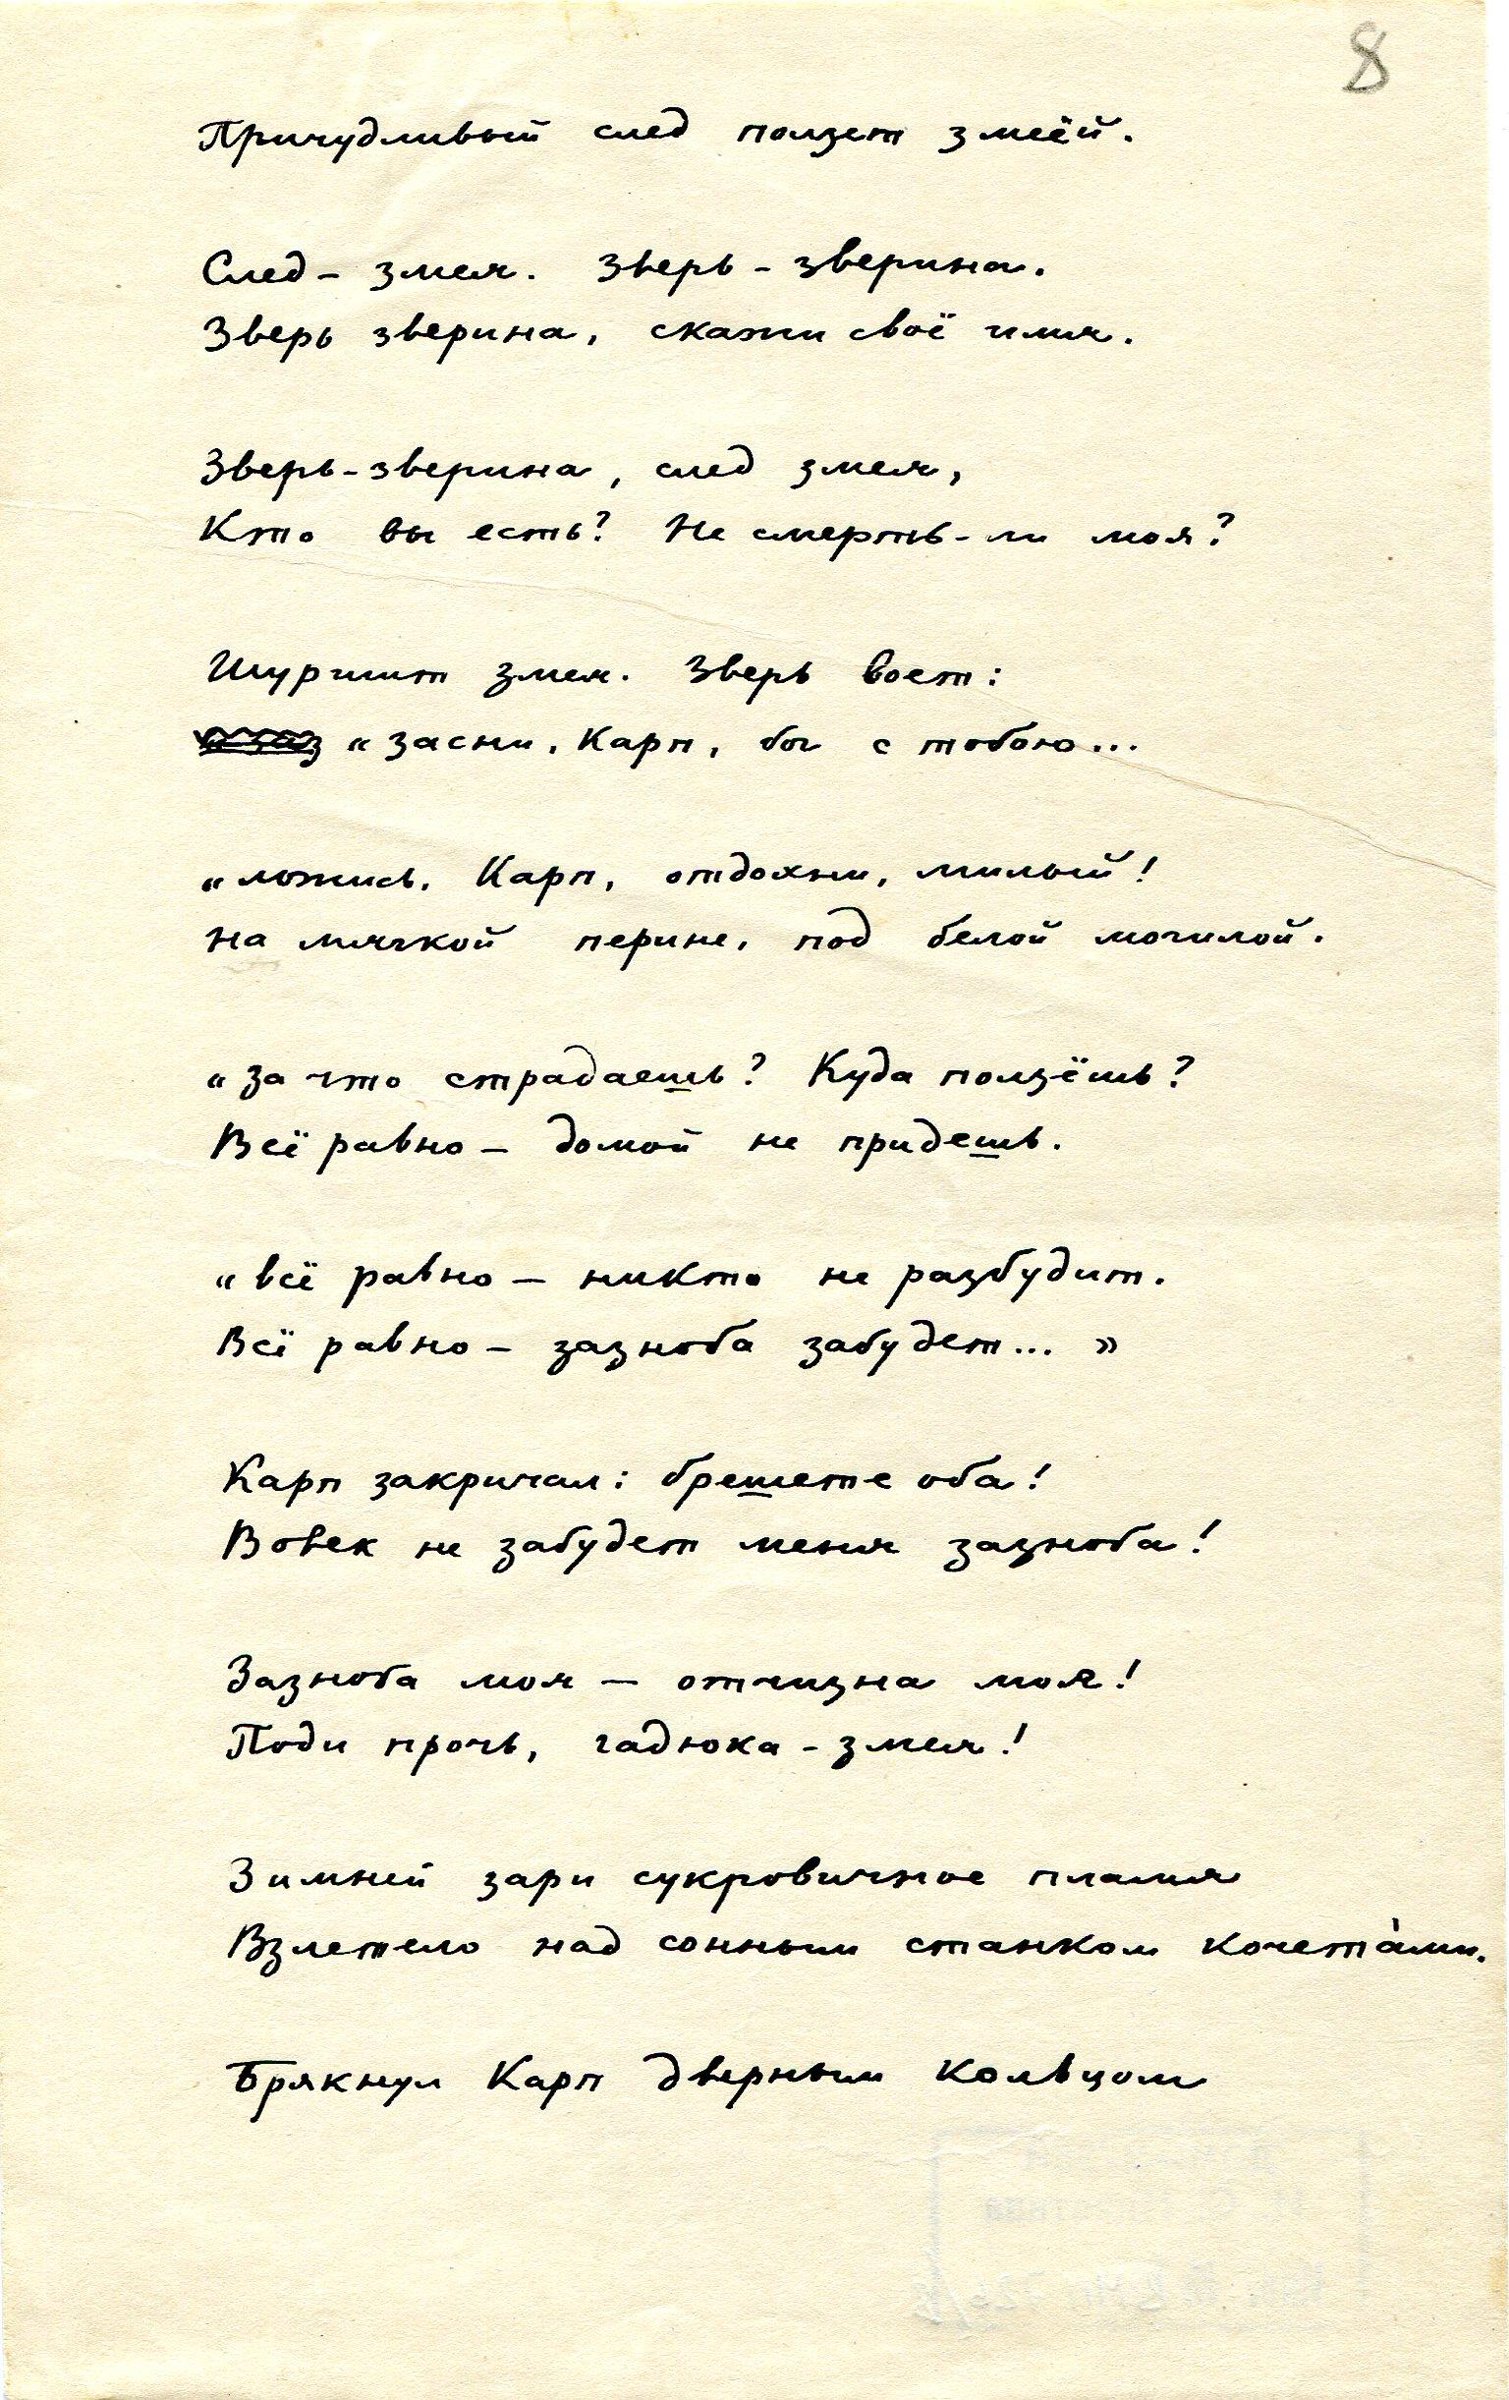 8
Причудливый след ползет змеёй.
След – змея. Зверь – зверина.
Зверь зверина, скажи своё имя.
Зверь-зверина, след змея,
Кто вы есть? Не смерть-ли моя?
Шуршит змея. Зверь воет:
« засни, Карп, бог с тобою...
« ложись, Карп, отдохни, милый!
на мягкой перине, под белой могилой.
« за что страдаешь? Куда ползёшь?
Всё равно – домой не придешь.
« всё равно – никто не разбудит.
Всё равно – зазноба забудет... »
Карп закричал: брешете оба!
Вовек не забудет меня зазноба!
Зазноба моя – отчизна моя!
Поди прочь, гадюка – змея!
Зимней зари сукровичное пламя
Взлетело над сонным станком кочета́ми.
Брякнул Карп дверным кольцом